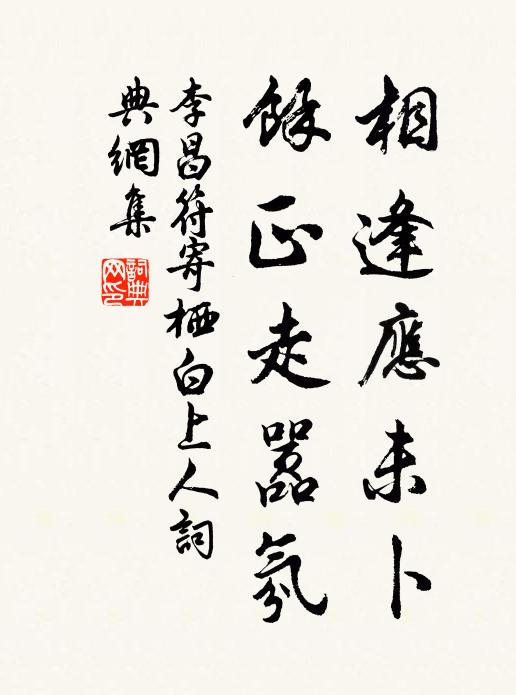 相逢應未卜
餘正走嚣氛
李昌符寄栖白上人詞
典網集
詞典
网印